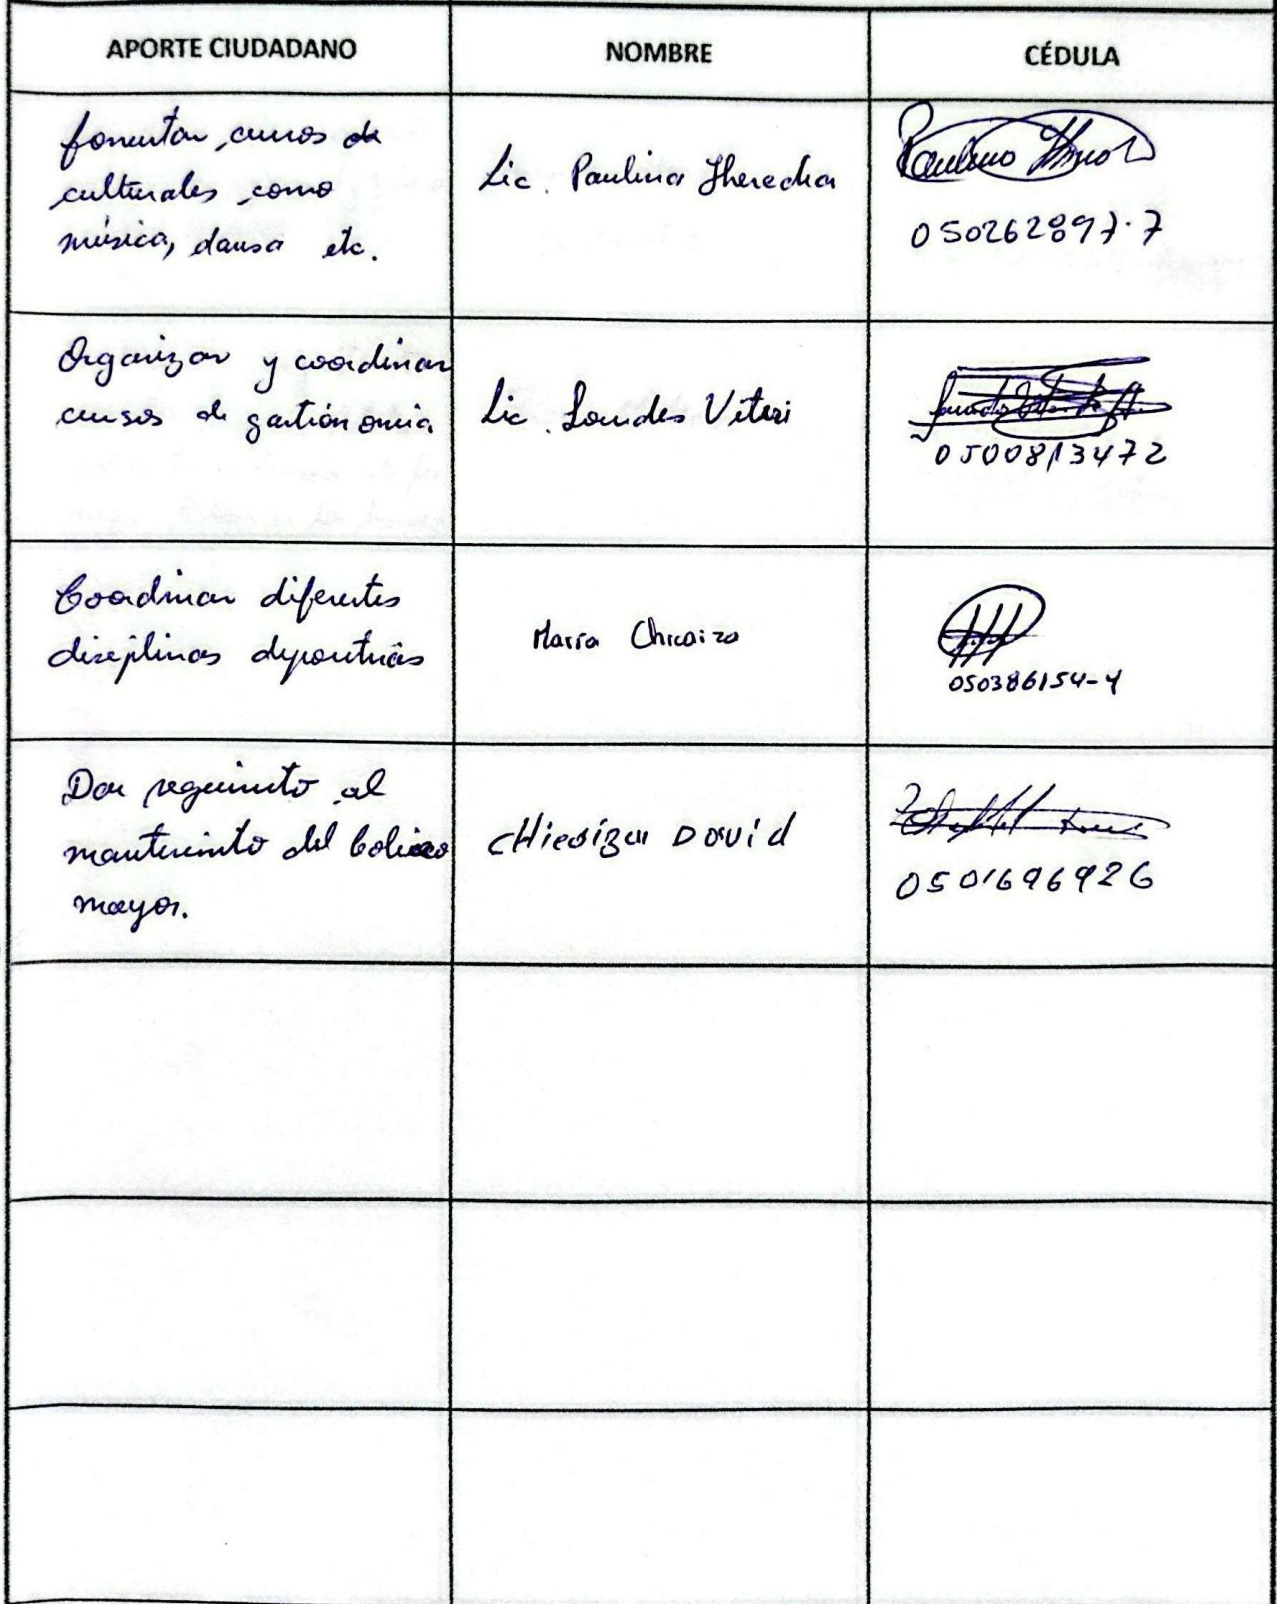 APORTE CIUDADANO
NOMBRE
CÉDULA
fomentar cursos de
culturales como
música, dansa etc.
Lic. Paulina
050262897-7
Organizar y coordinar
cursos de gastrónomia
Lic. Lourdes Viteri
0500813472
Coordinar diferentes
disciplinas deportivas
Maria Chicaiza
050386154-4
Dar seguimito al
mantenimito del Coliseo
mayor.
David
0501696926